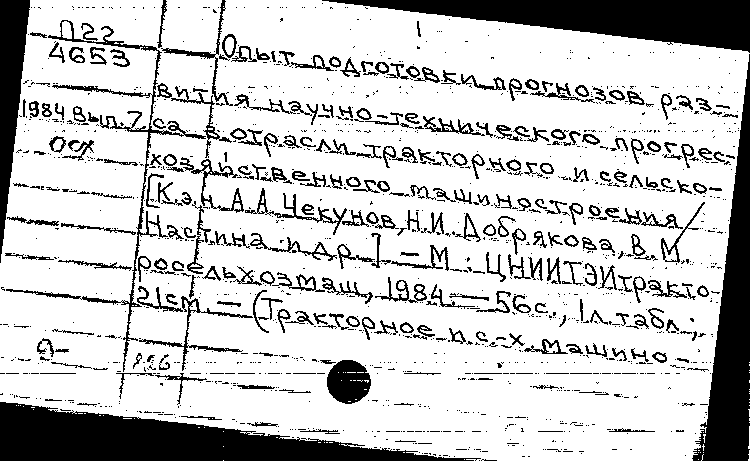 П22
4653
1984 Вып. 7
осх
1
Опыт подготовки прогнозов раз-
вития научно-технического прогрес-
са в отрасли тракторного и сельско-
хозяйственного машиностроения/
[К.э.н. А.А Чекунов, Н.И. Добрякова, В.М.
Настина и др.] – М.: ЦНИИТЭИтракто
росельхозмаш, 1984. – 56с., 1л. табл.;
21см. – (Тракторное и с.-х. машино-